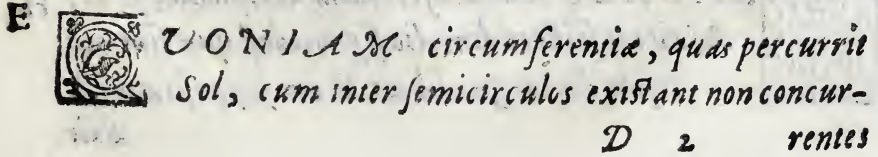 E
QVONIAM circumferentiæ, quas percurrit
Sol, cum inter semicirculos existant non concur-
D 2 rentes